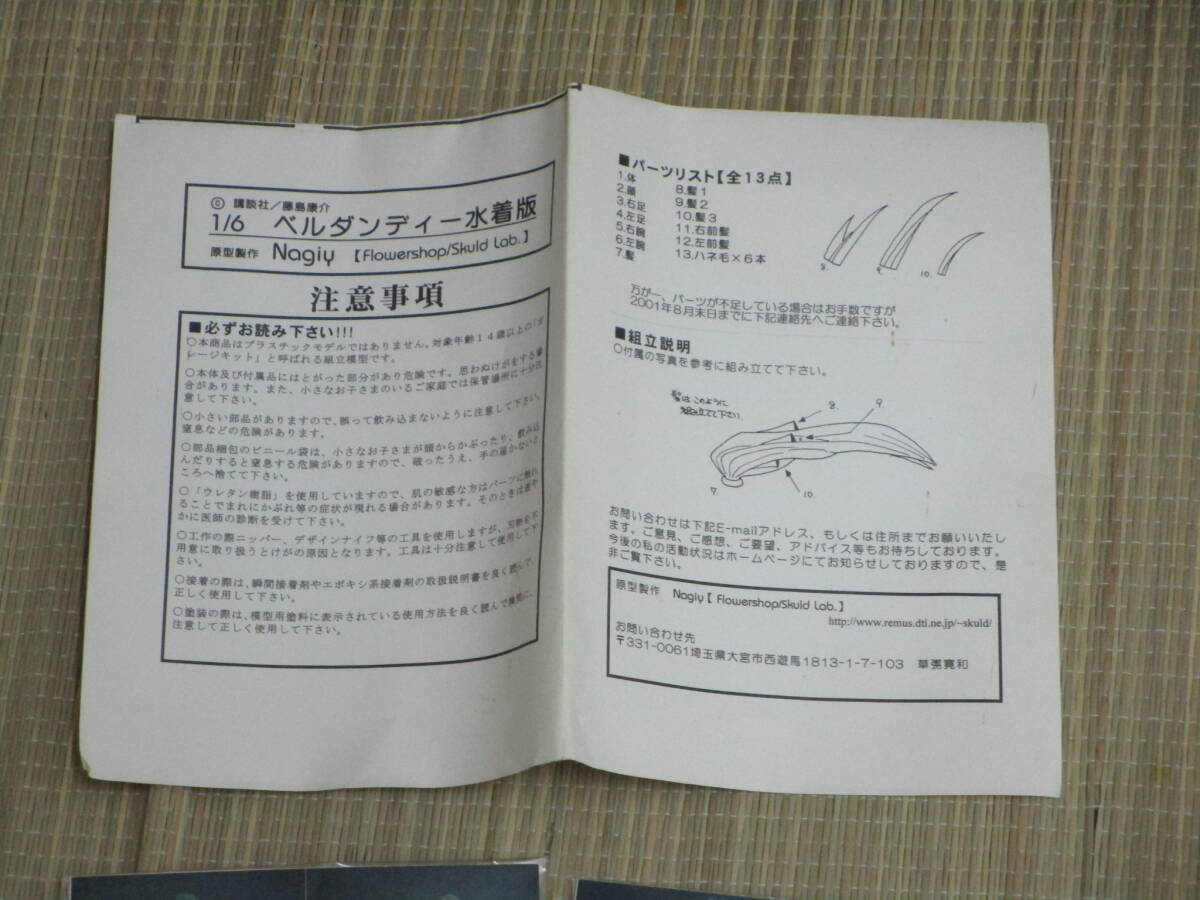 © 講談社/藤島康介
1/6 ベルダンディー水着版
原型製作 Nagiy 【Flowershop/Skuld Lab.】
注意事項
■必ずお読み下さい!!!
○本商品はプラスチックモデルではありません。対象年齢14歳以上の「ガ
レージキット」と呼ばれる組立模型です。
○本体及び付属品にはとがった部分があり危険です。思わぬけがをする場
合があります。また、小さなお子さまのいるご家庭では保管場所に十分注
意して下さい。
○小さい部品がありますので、誤って飲み込まないように注意して下さい。
窒息などの危険があります。
○部品梱包のビニール袋は、小さなお子さまが頭からかぶったり、飲み込
んだりすると窒息する危険がありますので、破ったうえ、手の届かないと
ころへ捨てて下さい。
○「ウレタン樹脂」を使用していますので、肌の敏感な方はパーツに触れ
ることでまれにかぶれ等の症状が現れる場合があります。そのときは速や
かに医師の診断を受けて下さい。
○工作の際ニッパー、デザインナイフ等の工具を使用しますが、刃物を不
用意に取り扱うとけがの原因となります。工具は十分注意して使用して下
さい。
○接着の際は、瞬間接着剤やエポキシ系接着剤の取扱説明書を良く読んで、
正しく使用して下さい。
○塗装の際は、模型用塗料に表示されている使用方法を良く読んで換気に、
注意して正しく使用して下さい。
■パーツリスト【全13点】
1.体 8.髪1
2.顔 9.髪2
3.右足 10.髪3
4.左足 11.右前髪
5.右腕 12.左前髪
6.左腕 13.ハネ毛×6本
7.髪
8. 9. 10.
万が一、パーツが不足している場合はお手数ですが
2001年8月末日までに下記連絡先へご連絡下さい。
■組立説明
○付属の写真を参考に組み立てて下さい。
髪は このように
組み立てて下さい
8. 9.
7. 10.
お問い合わせは下記E-mailアドレス、もしくは住所までお願いいたし
ます。ご意見、ご感想、ご要望、アドバイス等もお待ちしております。
今後の私の活動状況はホームページにてお知らせしておりますので、是
非ご覧下さい。
原型製作 Nagiy【 Flowershop/Skuld Lab.】
http://www.remus.dti.ne.jp/~skuld/
お問い合わせ先
〒331-0061埼玉県大宮市西遊馬1813-1-7-103 草張寛和